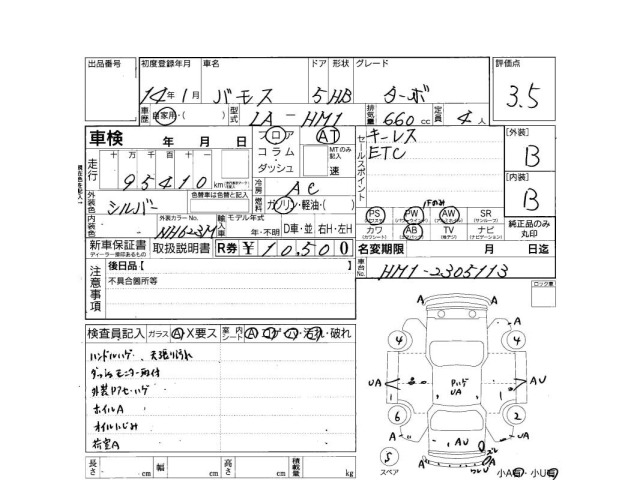 出品番号 初度登録年月 車名 ドア 形状 グレード 評価点
14年1月 バモス 5 HB ターボ 3.5
車歴 自家用・( ) 型式 LA-HM1 排気量 660cc 定員 4人
車検 年 月 日 フロア AT セールスポイント キーレス [外装]
コラム・ダッシュ MTのみ記入 速 ETC B
走行 十万 万 千 百 十 一
95410km 冷房 AC [内装]
外装色 シルバー 色替車は色替と記入 燃料 ガソリン・軽油・( ) 1Fのみ B
PS PW AW SR
内装色 外装カラーNo. NH623M 輸入車 モデル年式 年・不明 D車・並 右H・左H カワ AB TV ナビ 純正品のみ丸印
新車保証書 取扱説明書 R券 ¥10,500 名変期限 月 日迄
ディーラー捺印あるもの
注意事項 後日品[ 車台No. HM1-2305113
不具合箇所等 ロック車
検査員記入 ガラス A X要ス 室内シート A コゲ 汚れ・破れ
ハンドルハゲ、天張り汚れ
ダッシュモニター取付
外装アクセハゲ
ホイルA
オイルにじみ
荷室A
A A
4 4 A
UA Pハゲ UA AU
6 2
A AU A
S スペア 小A有・小U有
長さ cm 幅 cm 高さ cm 積載量 kg